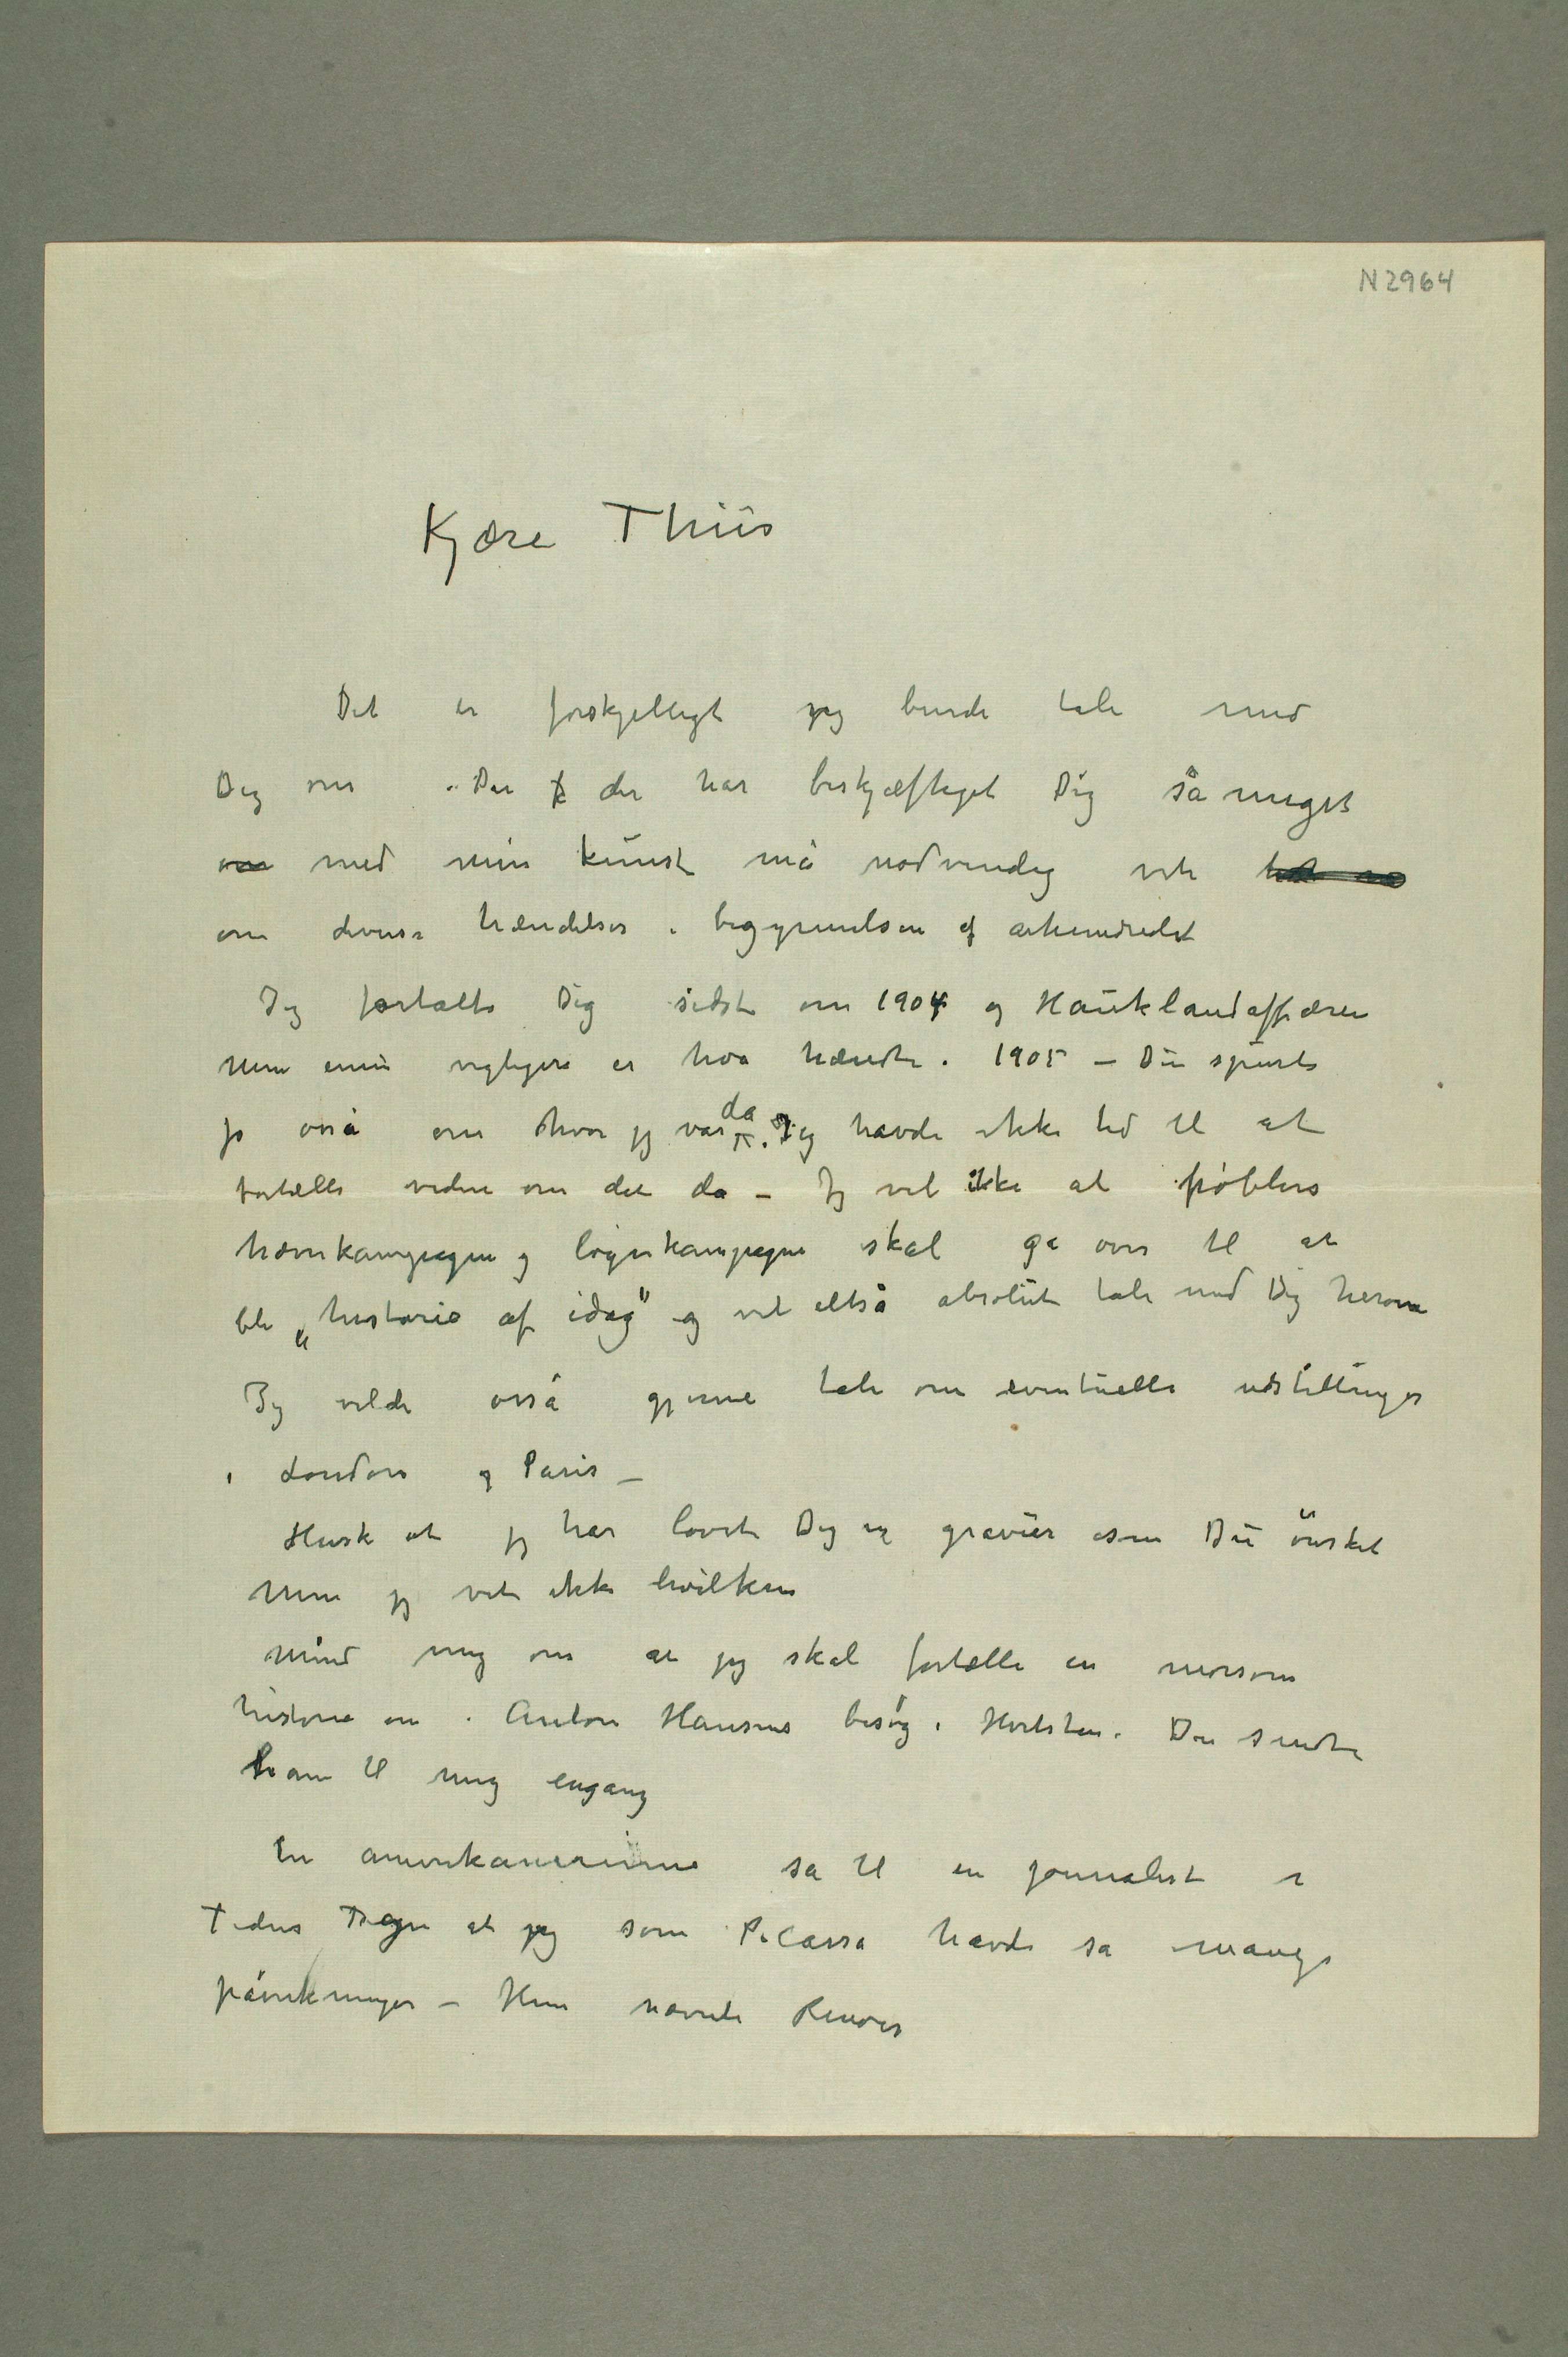 N 2964
Kjære Thiis
Det er forskjelligt jeg burde tale med
Dig om . Du der har beskjæftiget Dig så meget
om med min kunst må nødvendig vite
om diverse hændelser i begynnelsen af århundredet
Jeg fortalte Dig sidst om 1904 og Hauklandaffæren
Men ennu vigtigere er hva hændte i 1905 – Du spurte
jo osså om hvor jeg var da. Jeg havde ikke tid til at
fortælle videre om det da – Jeg vil ikke at pöblens
hævnkampagne og løgnkampagne skal gå over til at
bli „historie af idag" og vil altså absolut tale med Dig herom
Jeg vilde osså gjerne tale om eventuelle udstillinger
i London og Paris –
Husk at jeg har lovet Dig en gravür som Du önsket
Men jeg vet ikke hvilken
Mind mig om at jeg skal fortælle en morsom
historie om Anton Hansens besøg i Hvitsten. Du sendte
ham til mig engang
En amerikanerinne sa til en journalist i
Tidens Tegn at jeg som Picasso havde så mange
påvirkninger – Hun nævnte Renoir